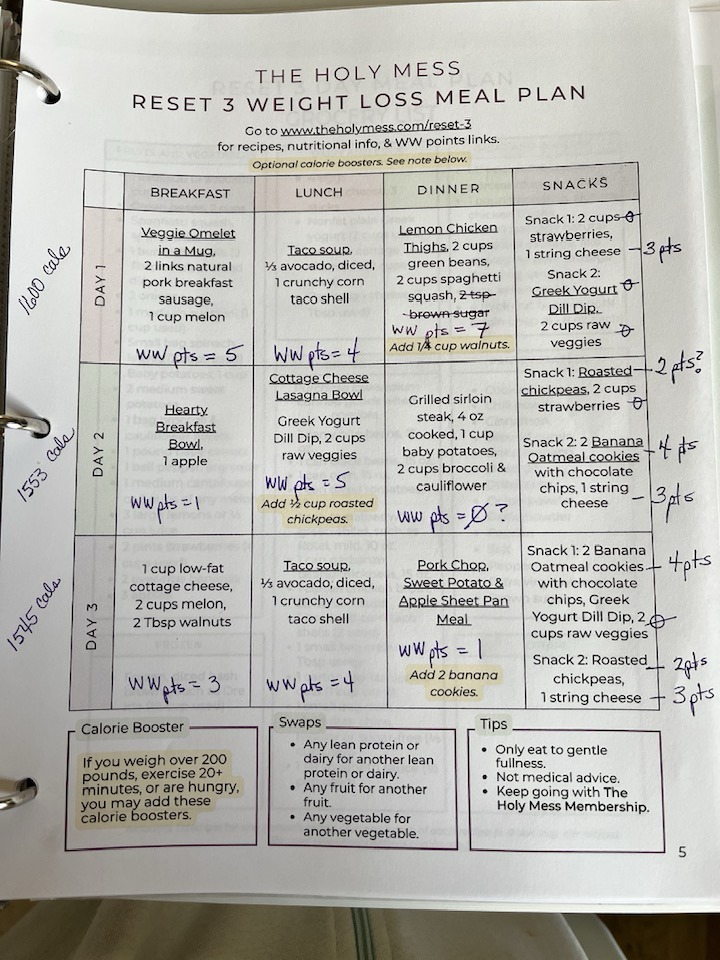 THE HOLY MESS
RESET 3 WEIGHT LOSS MEAL PLAN
Go to www.theholymess.com/reset-3
for recipes, nutritional info, & WW points links.
Optional calorie boosters. See note below.
BREAKFAST
LUNCH
DINNER
SNACKS
1600 cals
DAY 1
Veggie Omelet
in a Mug,
2 links natural
pork breakfast
sausage,
1 cup melon
WW pts = 5
Taco soup,
⅓ avocado, diced,
1 crunchy corn
taco shell
WW pts = 4
Lemon Chicken
Thighs, 2 cups
green beans,
2 cups spaghetti
squash, 2 tsp
brown sugar
WW pts = 7
Add 1/4 cup walnuts.
Snack 1: 2 cups 0
strawberries,
1 string cheese – 3 pts
Snack 2:
Greek Yogurt 0
Dill Dip,
2 cups raw 0
veggies
1553 cals
DAY 2
Hearty
Breakfast
Bowl,
1 apple
WW pts = 1
Cottage Cheese
Lasagna Bowl
Greek Yogurt
Dill Dip, 2 cups
raw veggies
WW pts = 5
Add ½ cup roasted
chickpeas.
Grilled sirloin
steak, 4 oz
cooked, 1 cup
baby potatoes,
2 cups broccoli &
cauliflower
WW pts = 0 ?
Snack 1: Roasted – 2 pts?
chickpeas, 2 cups
strawberries 0
Snack 2: 2 Banana
Oatmeal cookies – 4 pts
with chocolate
chips, 1 string
cheese – 3 pts
1545 cals
DAY 3
1 cup low-fat
cottage cheese,
2 cups melon,
2 Tbsp walnuts
WW pts = 3
Taco soup,
⅓ avocado, diced,
1 crunchy corn
taco shell
WW pts = 4
Pork Chop,
Sweet Potato &
Apple Sheet Pan
Meal
WW pts = 1
Add 2 banana
cookies.
Snack 1: 2 Banana
Oatmeal cookies – 4 pts
with chocolate
chips, Greek
Yogurt Dill Dip, 2 0
cups raw veggies
Snack 2: Roasted – 2 pts
chickpeas,
1 string cheese – 3 pts
Calorie Booster
If you weigh over 200
pounds, exercise 20+
minutes, or are hungry,
you may add these
calorie boosters.
Swaps
• Any lean protein or
dairy for another lean
protein or dairy.
• Any fruit for another
fruit.
• Any vegetable for
another vegetable.
Tips
• Only eat to gentle
fullness.
• Not medical advice.
• Keep going with The
Holy Mess Membership.
5